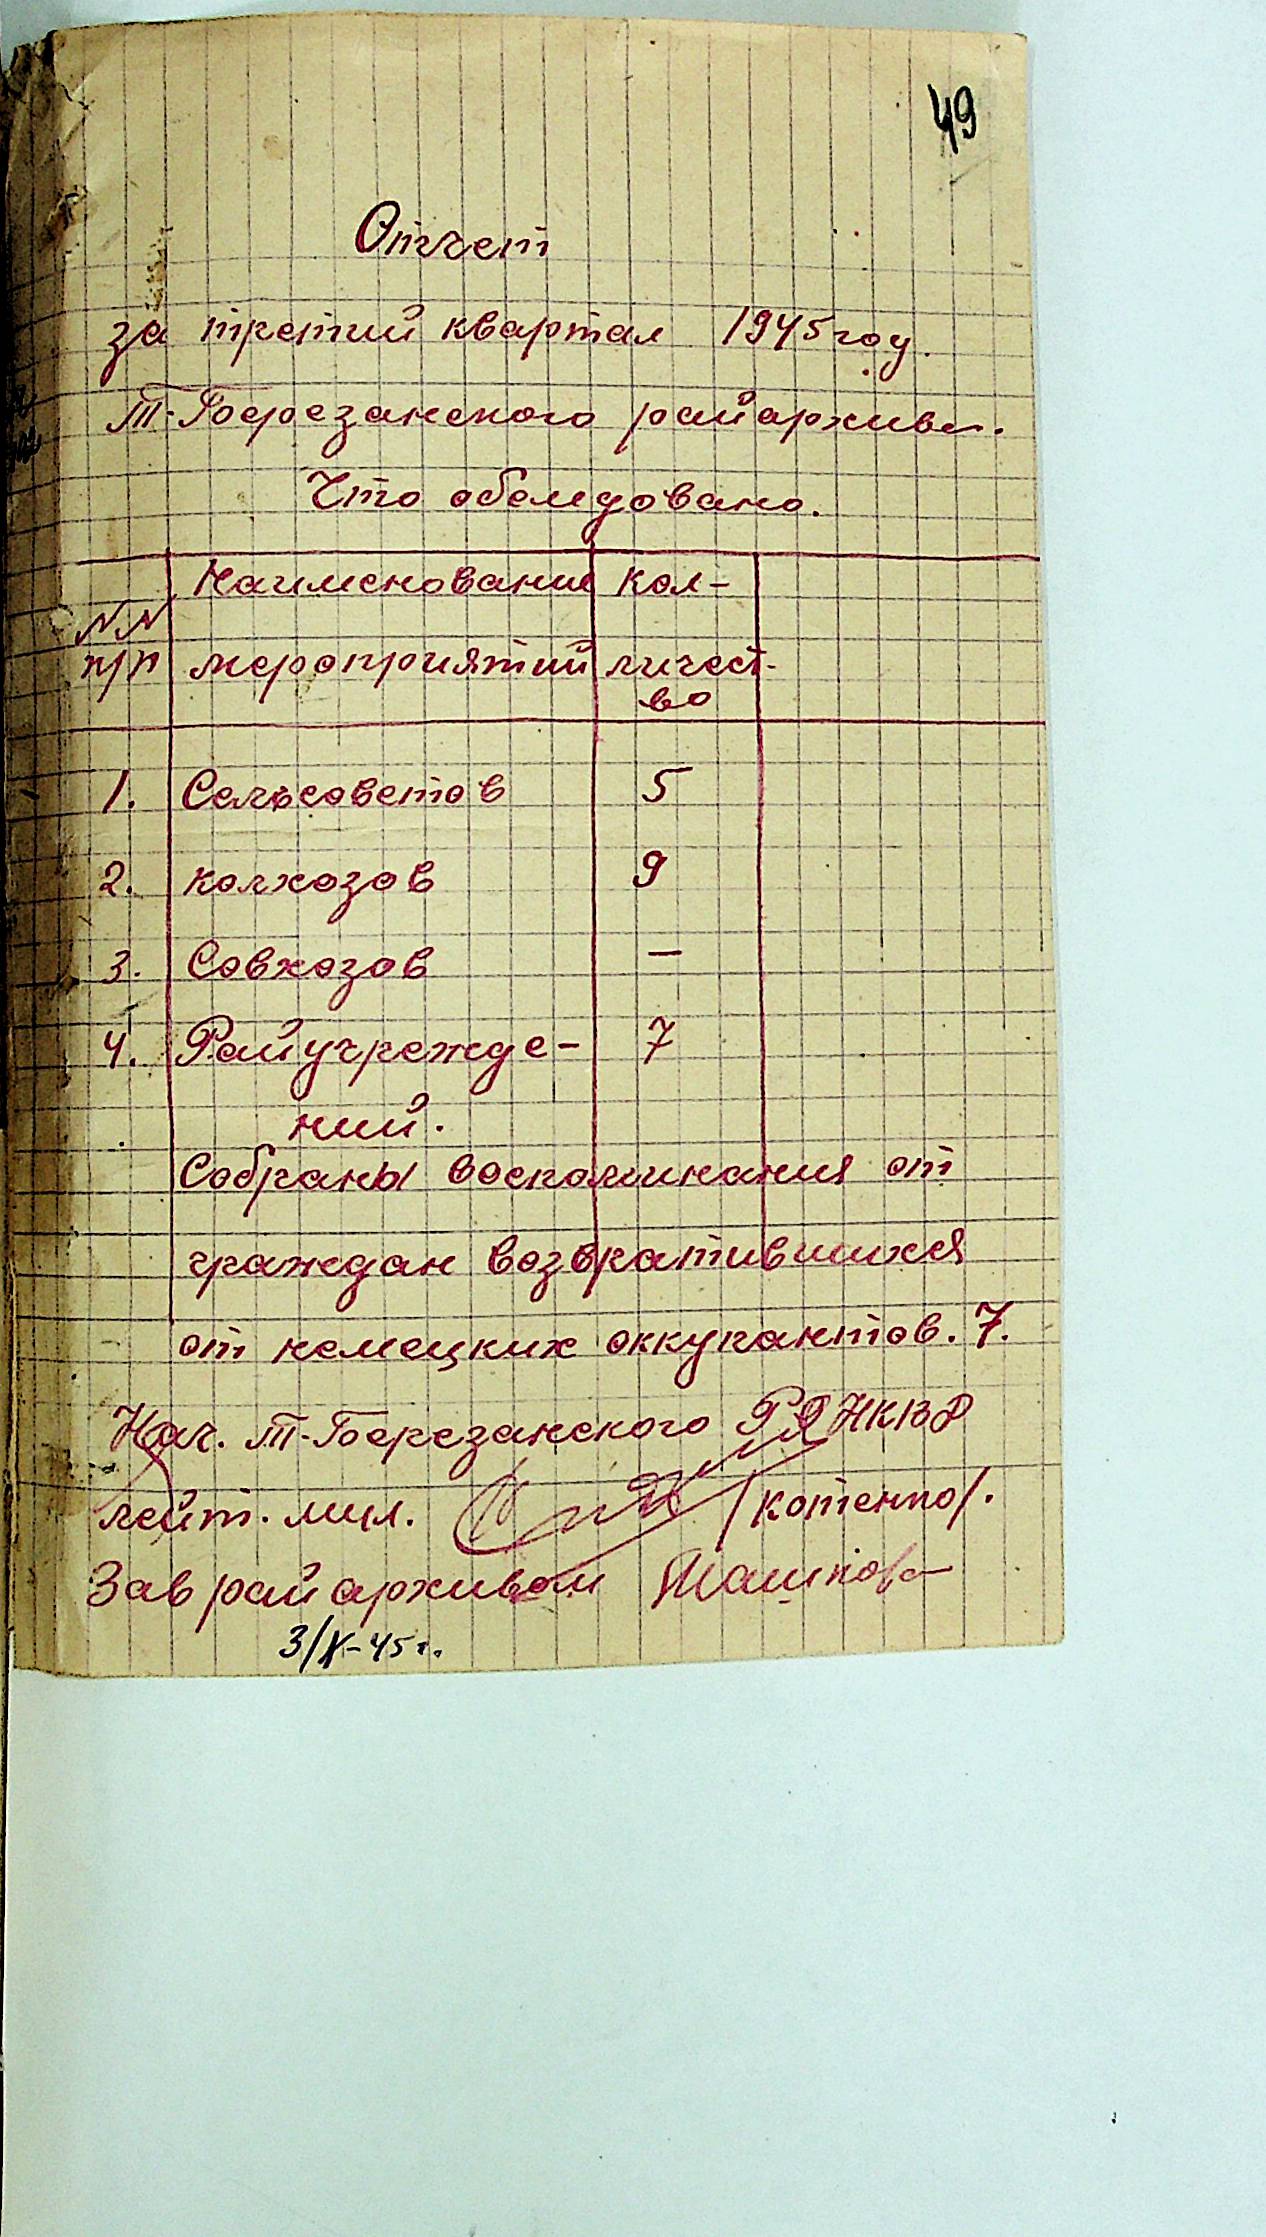 49
Отчет
за третий квартал 1945 году.
Т-Березанского райархива.
Что обследовано.
Наименование кол-
NN
п/п мероприятий личест-
во
1. Сельсоветов 5
2. колхозов 9
3. Совхозов —
4. Райучрежде- 7
ний.
Собраны воспоминания от
граждан возвратившихся
от немецких оккупантов. 7.
Нач. Т-Березанского РО НКВД
лейт. мил. /котенко/.
Зав райархивом Машкова
3/X-45 г.